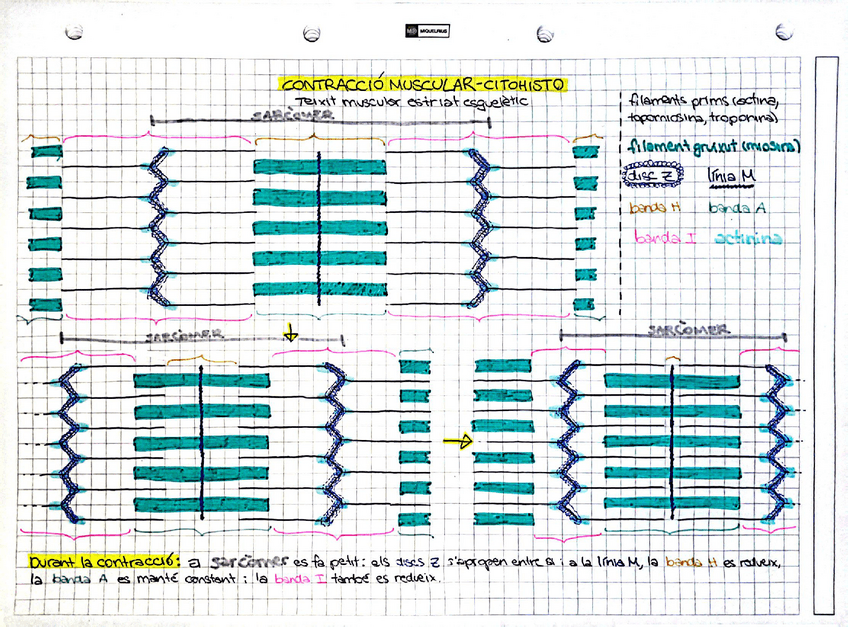 MIQUELRIUS
CONTRACCIÓ MUSCULAR-CITOHISTO
Teixit muscular estriat esquelètic
SARCÒMER
filaments prims (actina,
topomiosina, troponina)
filament gruixut (miosina)
disc Z línia M
banda H banda A
banda I actinina
SARCÒMER
SARCÒMER
Durant la contracció: el sarcòmer es fa petit: els discs Z s'apropen entre si i a la línia M, la banda H es redueix,
la banda A es manté constant i la banda I també es redueix.